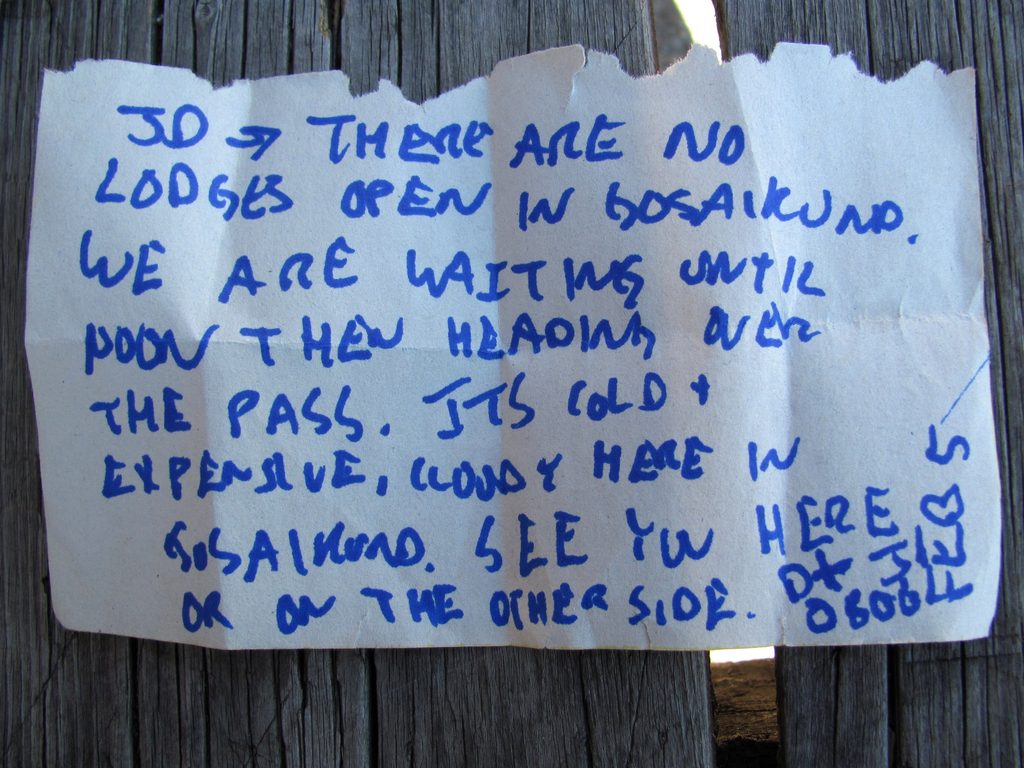 JD → THERE ARE NO
LODGES OPEN IN GOSAIKUND.
WE ARE WAITING UNTIL
NOON THEN HEADING OVER
THE PASS. ITS COLD +
EXPENSIVE, CLOUDY HERE IN
GOSAIKUND. SEE YOU HERE
OR ON THE OTHER SIDE.